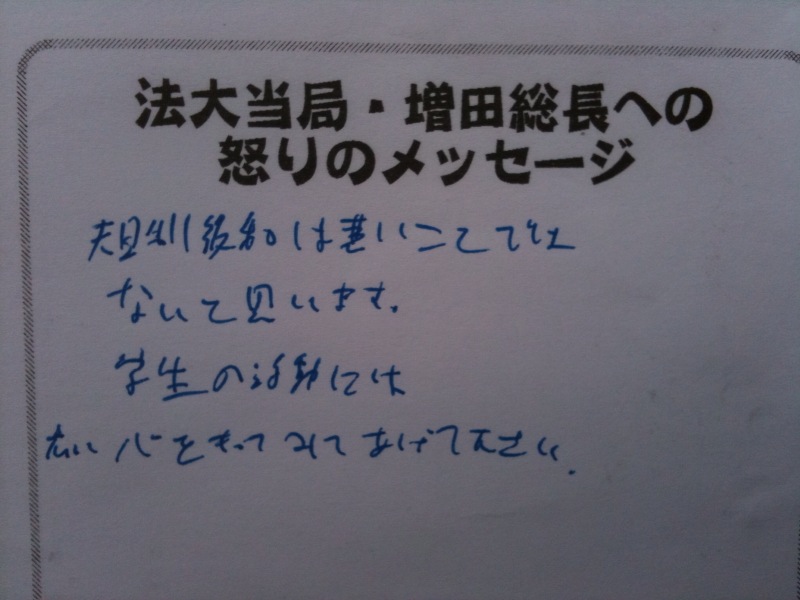 法大当局・増田総長への
怒りのメッセージ
規制緩和は悪いことでは
ないと思います。
学生の活動には
広い心をもってみてあげて下さい.